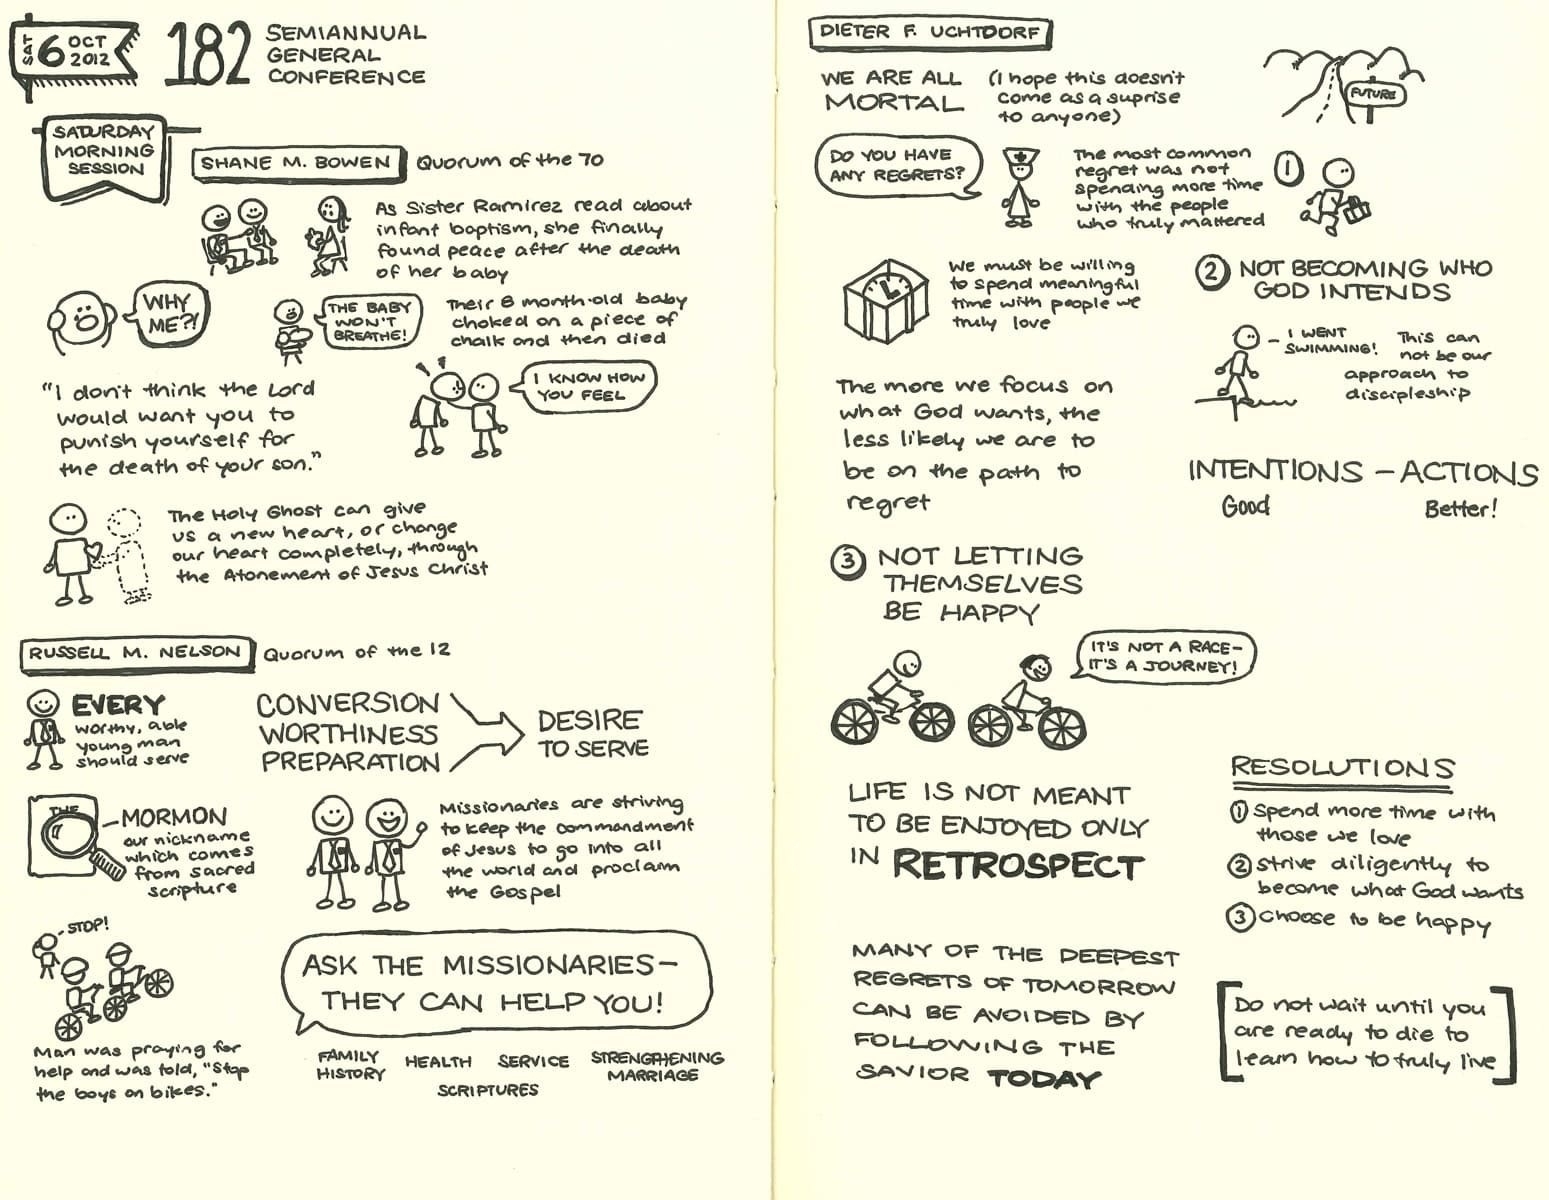 SAT 6 OCT 2012
182 SEMIANNUAL
GENERAL
CONFERENCE
SATURDAY
MORNING
SESSION
SHANE M. BOWEN Quorum of the 70
As Sister Ramirez read about
infant baptism, she finally
found peace after the death
of her baby
WHY
ME?!
THE BABY
WON'T
BREATHE!
Their 8 month-old baby
choked on a piece of
chalk and then died
"I don't think the Lord
would want you to
punish yourself for
the death of your son."
I KNOW HOW
YOU FEEL
The Holy Ghost can give
us a new heart, or change
our heart completely, through
the Atonement of Jesus Christ
RUSSELL M. NELSON Quorum of the 12
EVERY
worthy, able
young man
should serve
CONVERSION
WORTHINESS
PREPARATION
DESIRE
TO SERVE
THE
MORMON
our nickname
which comes
from sacred
scripture
Missionaries are striving
to keep the commandment
of Jesus to go into all
the world and proclaim
the Gospel
STOP!
Man was praying for
help and was told, "Stop
the boys on bikes."
ASK THE MISSIONARIES—
THEY CAN HELP YOU!
FAMILY
HISTORY
HEALTH
SERVICE
STRENGTHENING
MARRIAGE
SCRIPTURES
DIETER F. UCHTDORF
WE ARE ALL
MORTAL
(I hope this doesn't
come as a suprise
to anyone)
FUTURE
DO YOU HAVE
ANY REGRETS?
The most common
regret was not
spending more time
with the people
who truly mattered
1
We must be willing
to spend meaningful
time with people we
truly love
2 NOT BECOMING WHO
GOD INTENDS
- I WENT
SWIMMING!
This can
not be our
approach to
discipleship
The more we focus on
what God wants, the
less likely we are to
be on the path to
regret
INTENTIONS - ACTIONS
Good Better!
3 NOT LETTING
THEMSELVES
BE HAPPY
IT'S NOT A RACE-
IT'S A JOURNEY!
LIFE IS NOT MEANT
TO BE ENJOYED ONLY
IN RETROSPECT
RESOLUTIONS
1 Spend more time with
those we love
2 Strive diligently to
become what God wants
3 Choose to be happy
MANY OF THE DEEPEST
REGRETS OF TOMORROW
CAN BE AVOIDED BY
FOLLOWING THE
SAVIOR TODAY
Do not wait until you
are ready to die to
learn how to truly live